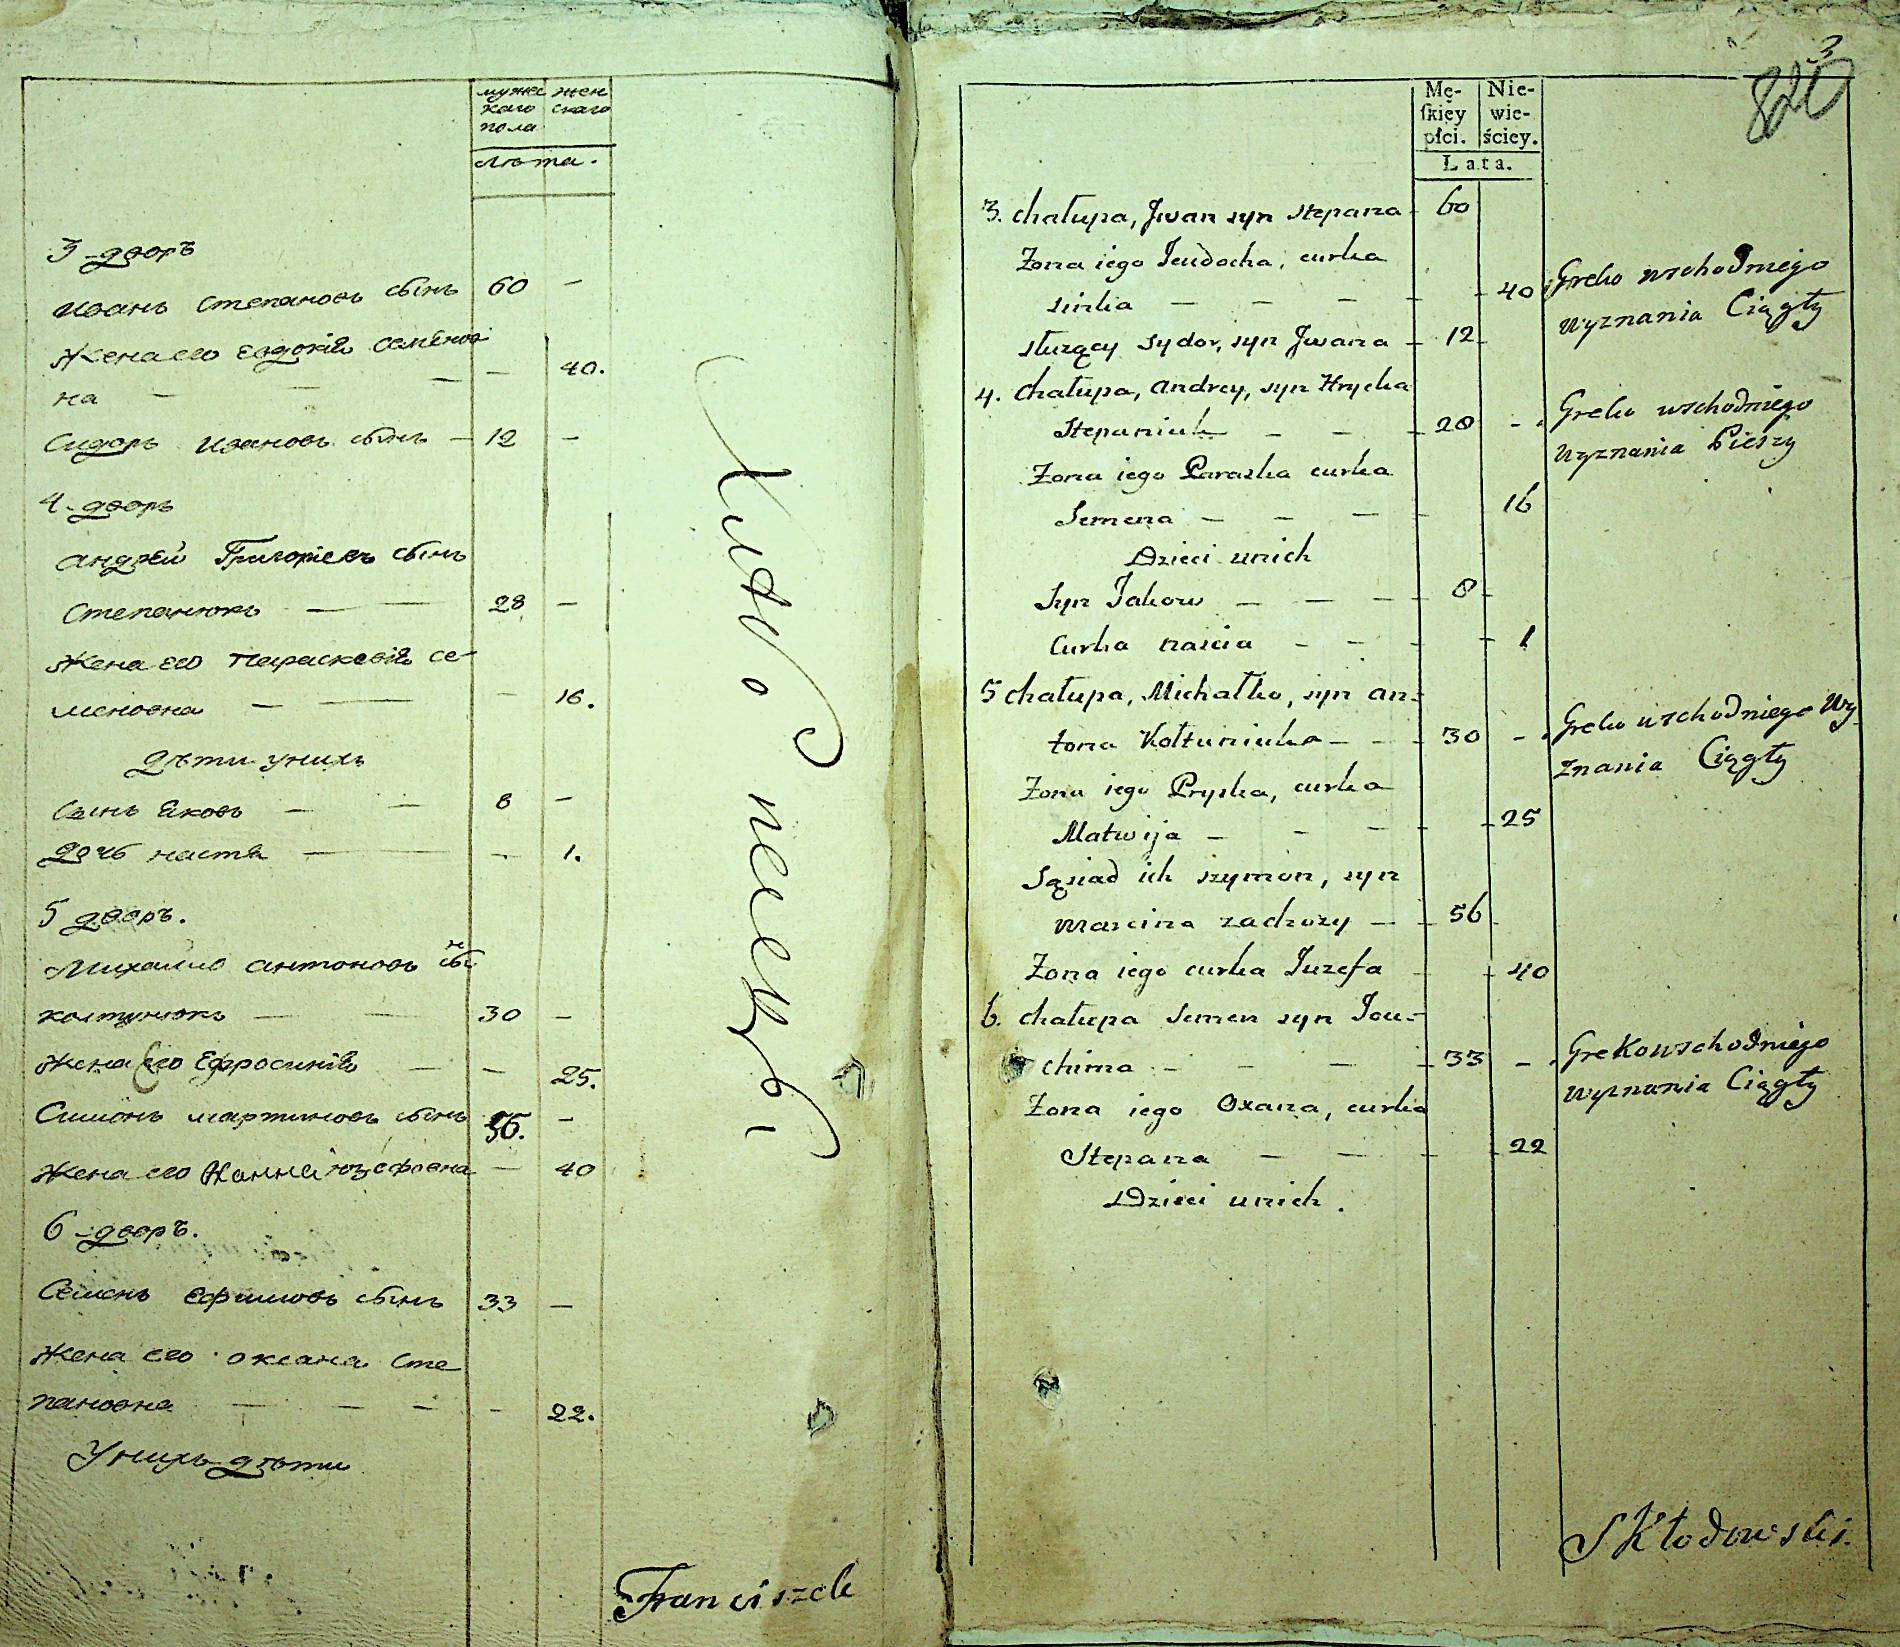 мужес
каго
пола
жен
скаго
лѣта.
3 дворъ
Иванъ Степановъ сынъ 60 —
Жена его Евдокія Семенов
на — — — — 40.
Сидоръ Ивановъ сынъ — 12 —
4 дворъ
Андрей Григоріевъ сынъ
Степанюкъ — — 28 —
Жена его Параскевія Се-
меновна — — — 16.
дѣти унихъ
Сынъ Яковъ — — 8 —
дочь настя — — 1.
5 дворъ.
Михайло Антоновъ сынъ
колтунюкъ — — 30 —
Жена его Ефросинія — — 25.
Симонъ мартиновъ сынъ 56. —
Жена его Юзефовна — 40
6 дворъ.
Семенъ Ефимовъ сынъ 33 —
Жена его Оксана Сте
пановна — — — — 22.
Унихъ дѣти
Franciszek
3
820
Mę-
ſkiey
płci.
Nie-
wie-
ściey.
Lata.
3. Chałupa, Jwan syn Stepana 60
Żona iego Ieudocha, curka
— — — 40 Greko wschodniego
wyznania Ciągły
służący Sydor, syn Jwana 12
4. Chałupa, Andrey, syn Hryćka
Stepaniuk — — 28 - Greko wschodniego
wyznania Pieszy
Żona iego Paraska curka
Semena — — — 16
Dzieci unich
Syn Jakow — — — 8
Curka nascia — — 1
5 Chałupa, Michałko, syn An-
tona Kołtuniuka — — 30 - Greko wschodniego Wy
znania Ciągły
Żona iego Pryska, curka
Matwija — — — 25
Sąsiad ich szymon, syn
Marcina — 56
Żona iego curka Iuzefa 40
6. Chałupa Semen syn Iou-
chima — — — 33 - Greko wschodniego
wyznania Ciągły
Żona iego Oxana, curka
Stepana — — 22
Dzieci unich.
Skłodowski.